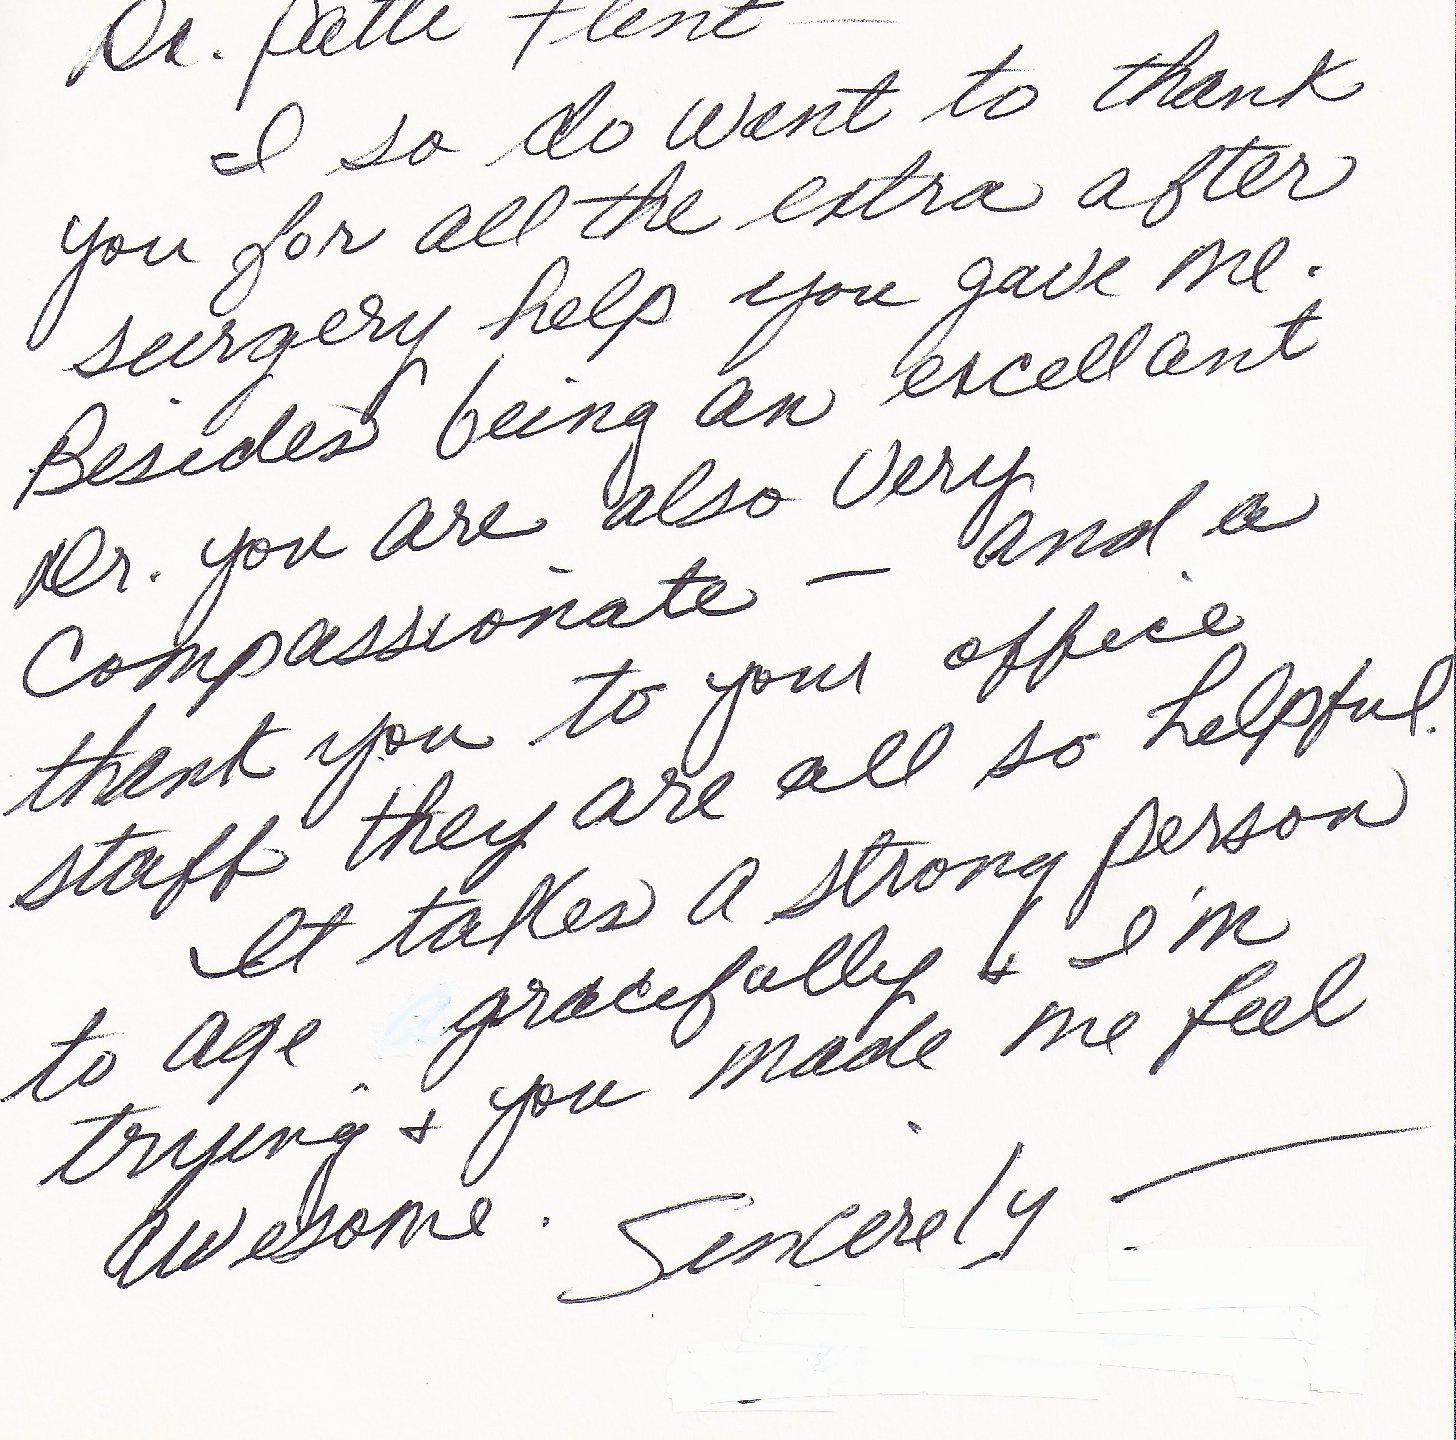 Dr. Patti Flint —
I so do want to thank
you for all the extra after
surgery help you gave me.
Besides being an excellant
Dr. you are also very
Compassionate — and a
thank you to your office
staff they are all so helpful.
It takes a strong person
to age gracefully & I'm
trying & you made me feel
awesome. Sincerely —